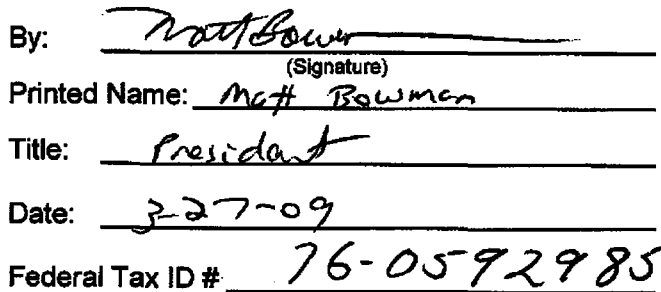 By: Matt Bowman
(Signature)
Printed Name: Matt Bowman
Title: President
Date: 3-27-09
Federal Tax ID # 76-0592985